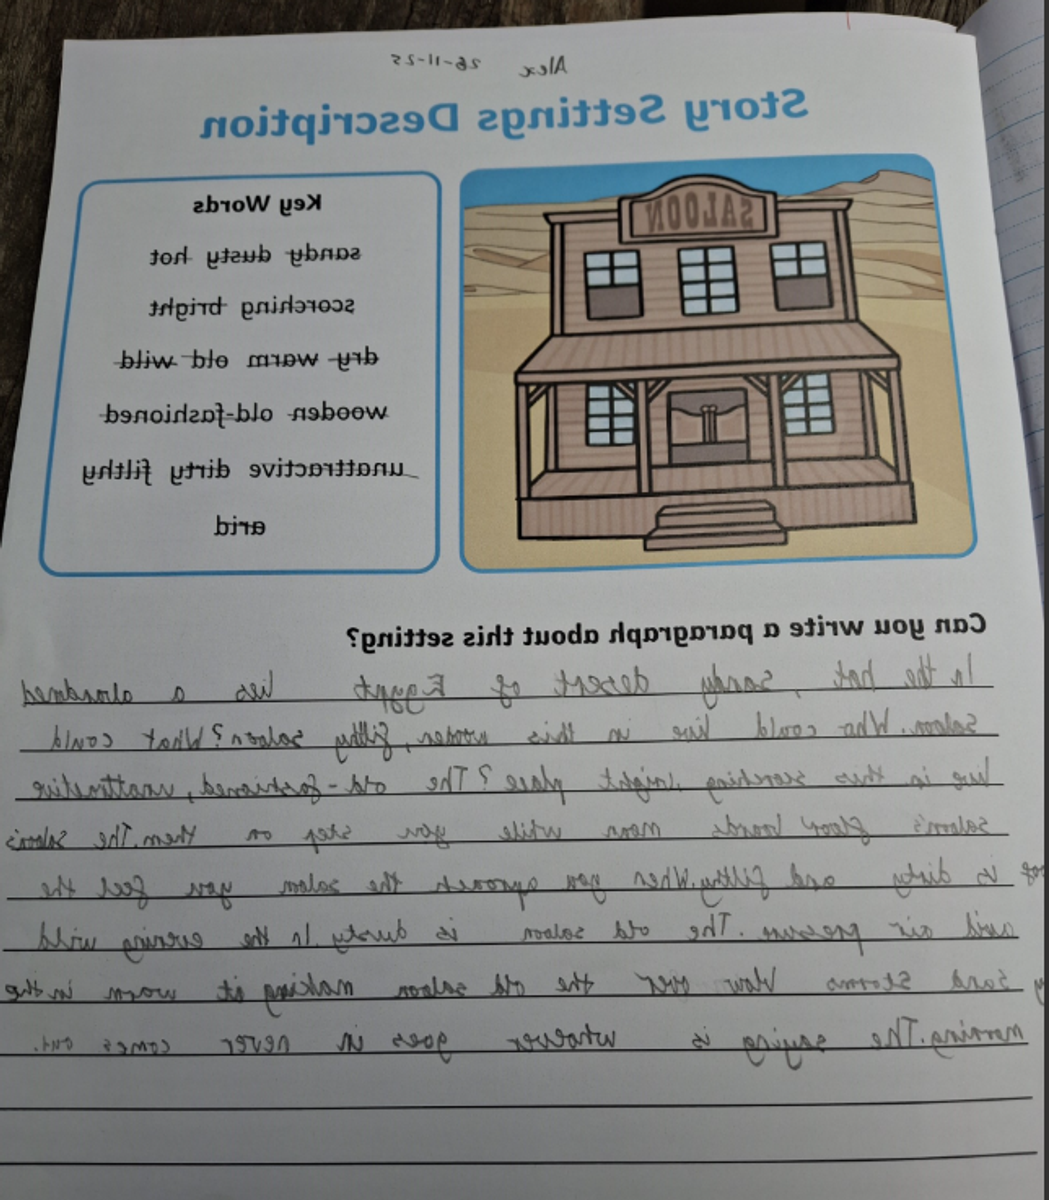 Alex 26-11-25
Story Settings Description
SALOON
Key Words
sandy dusty hot
scorching bright
dry warm old wild
wooden old-fashioned
unattractive dirty filthy
arid
Can you write a paragraph about this setting?
In the hot, sandy desert of Egypt lies a abandoned
saloon. Who could live in this wooden, filthy saloon? What could
live in this scorching, bright place? The old-fashioned, unattractive
saloon's floor boards moan while you step on them. The saloon's
is dirty and filthy. When you aproach the saloon you feel the
arid air presure. The old saloon is dusty. In the evening wild
sand storms blow over the old saloon making it warm in the
morning. The saying is whoever goes in never comes out.